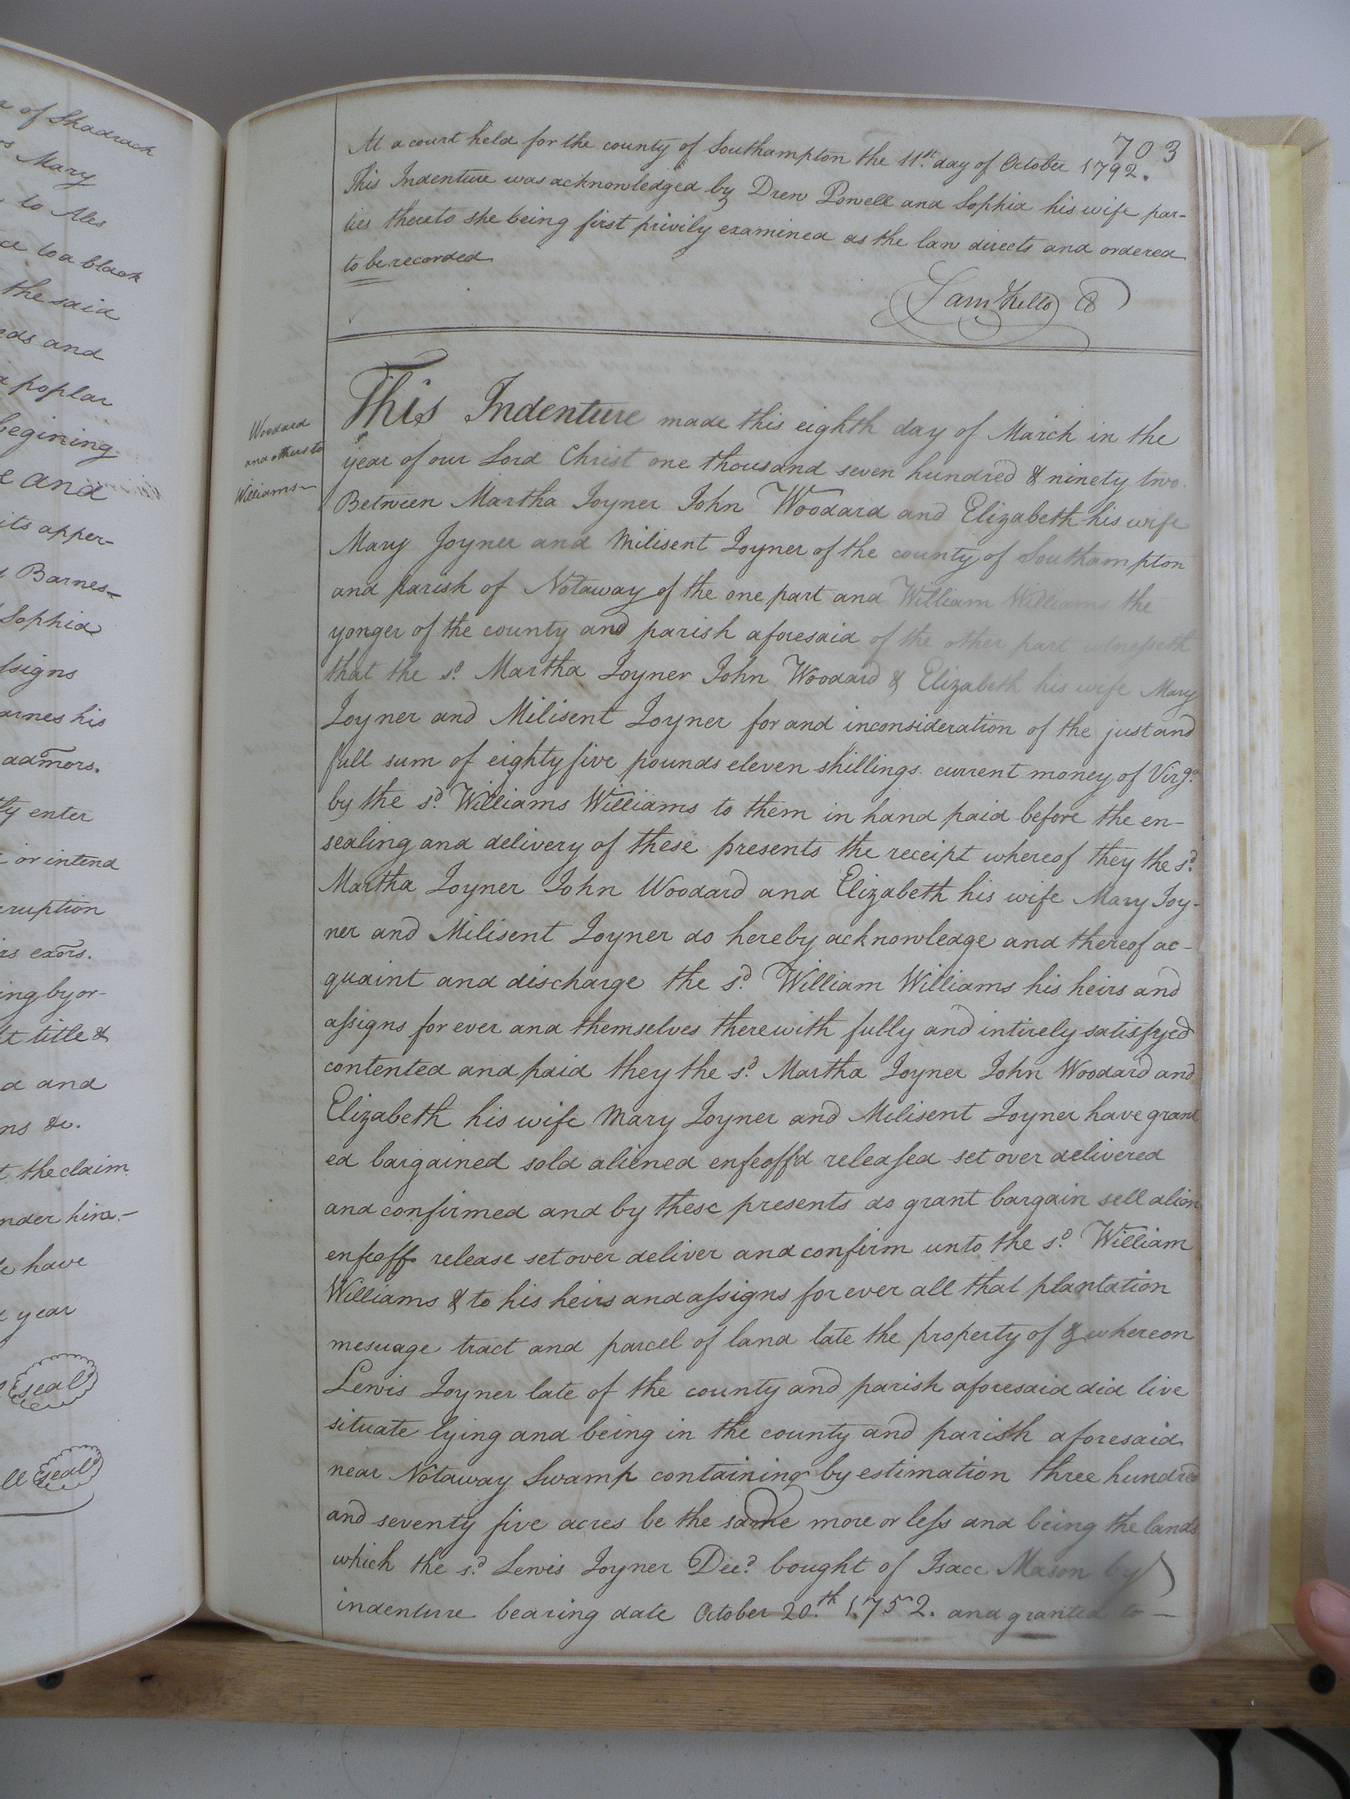 r of Shadrach
Mary
to
ce to a black
the said
eds and
poplar
begining
and
its apper-
Barnes
Sophia
ssigns
arnes his
admors.
tly enter
or intend
eruption
is exors.
ing by or-
title &
d and
ns &c.
t the claim
nder him.—
have
year
seal
ll seal
703
At a court held for the county of Southampton the 11th day of October 1792.
This Indenture was acknowledged by Drew Powell and Sophia his wife par-
ties thereto she being first privily examined as the law directs and ordered
to be recorded
Sam Kello C
Woodard
and others to
Williams—
This Indenture made this eighth day of March in the
year of our Lord Christ one thousand seven hundred & ninety two.
Between Martha Joyner John Woodard and Elizabeth his wife
Mary Joyner and Milisent Joyner of the county of Southampton
and parish of Notaway of the one part and William Williams the
yonger of the county and parish aforesaid of the other part witnesseth
that the sd. Martha Joyner John Woodard & Elizabeth his wife Mary
Joyner and Milisent Joyner for and inconsideration of the just and
full sum of eighty five pounds eleven shillings current money of Virga.
by the sd. Williams Williams to them in hand paid before the en-
sealing and delivery of these presents the receipt whereof they the sd.
Martha Joyner John Woodard and Elizabeth his wife Mary Joy-
ner and Milisent Joyner do hereby acknowledge and thereof ac-
quaint and discharge the sd. William Williams his heirs and
assigns for ever and themselves therewith fully and intirely satisfyed
contented and paid they the sd. Martha Joyner John Woodard and
Elizabeth his wife Mary Joyner and Milisent Joyner have grant
ed bargained sold aliened enfeoffd released set over delivered
and confirmed and by these presents do grant bargain sell alien
enfeoff release set over deliver and confirm unto the sd. William
Williams & to his heirs and assigns for ever all that plantation
mesuage tract and parcel of land late the property of & whereon
Lewis Joyner late of the county and parish aforesaid did live
situate lying and being in the county and parish aforesaid
near Notaway Swamp containing by estimation three hundred
and seventy five acres be the same more or less and being the lands
which the sd. Lewis Joyner Decd. bought of Isacc Mason by
indenture bearing date October 20th. 1752. and granted to —